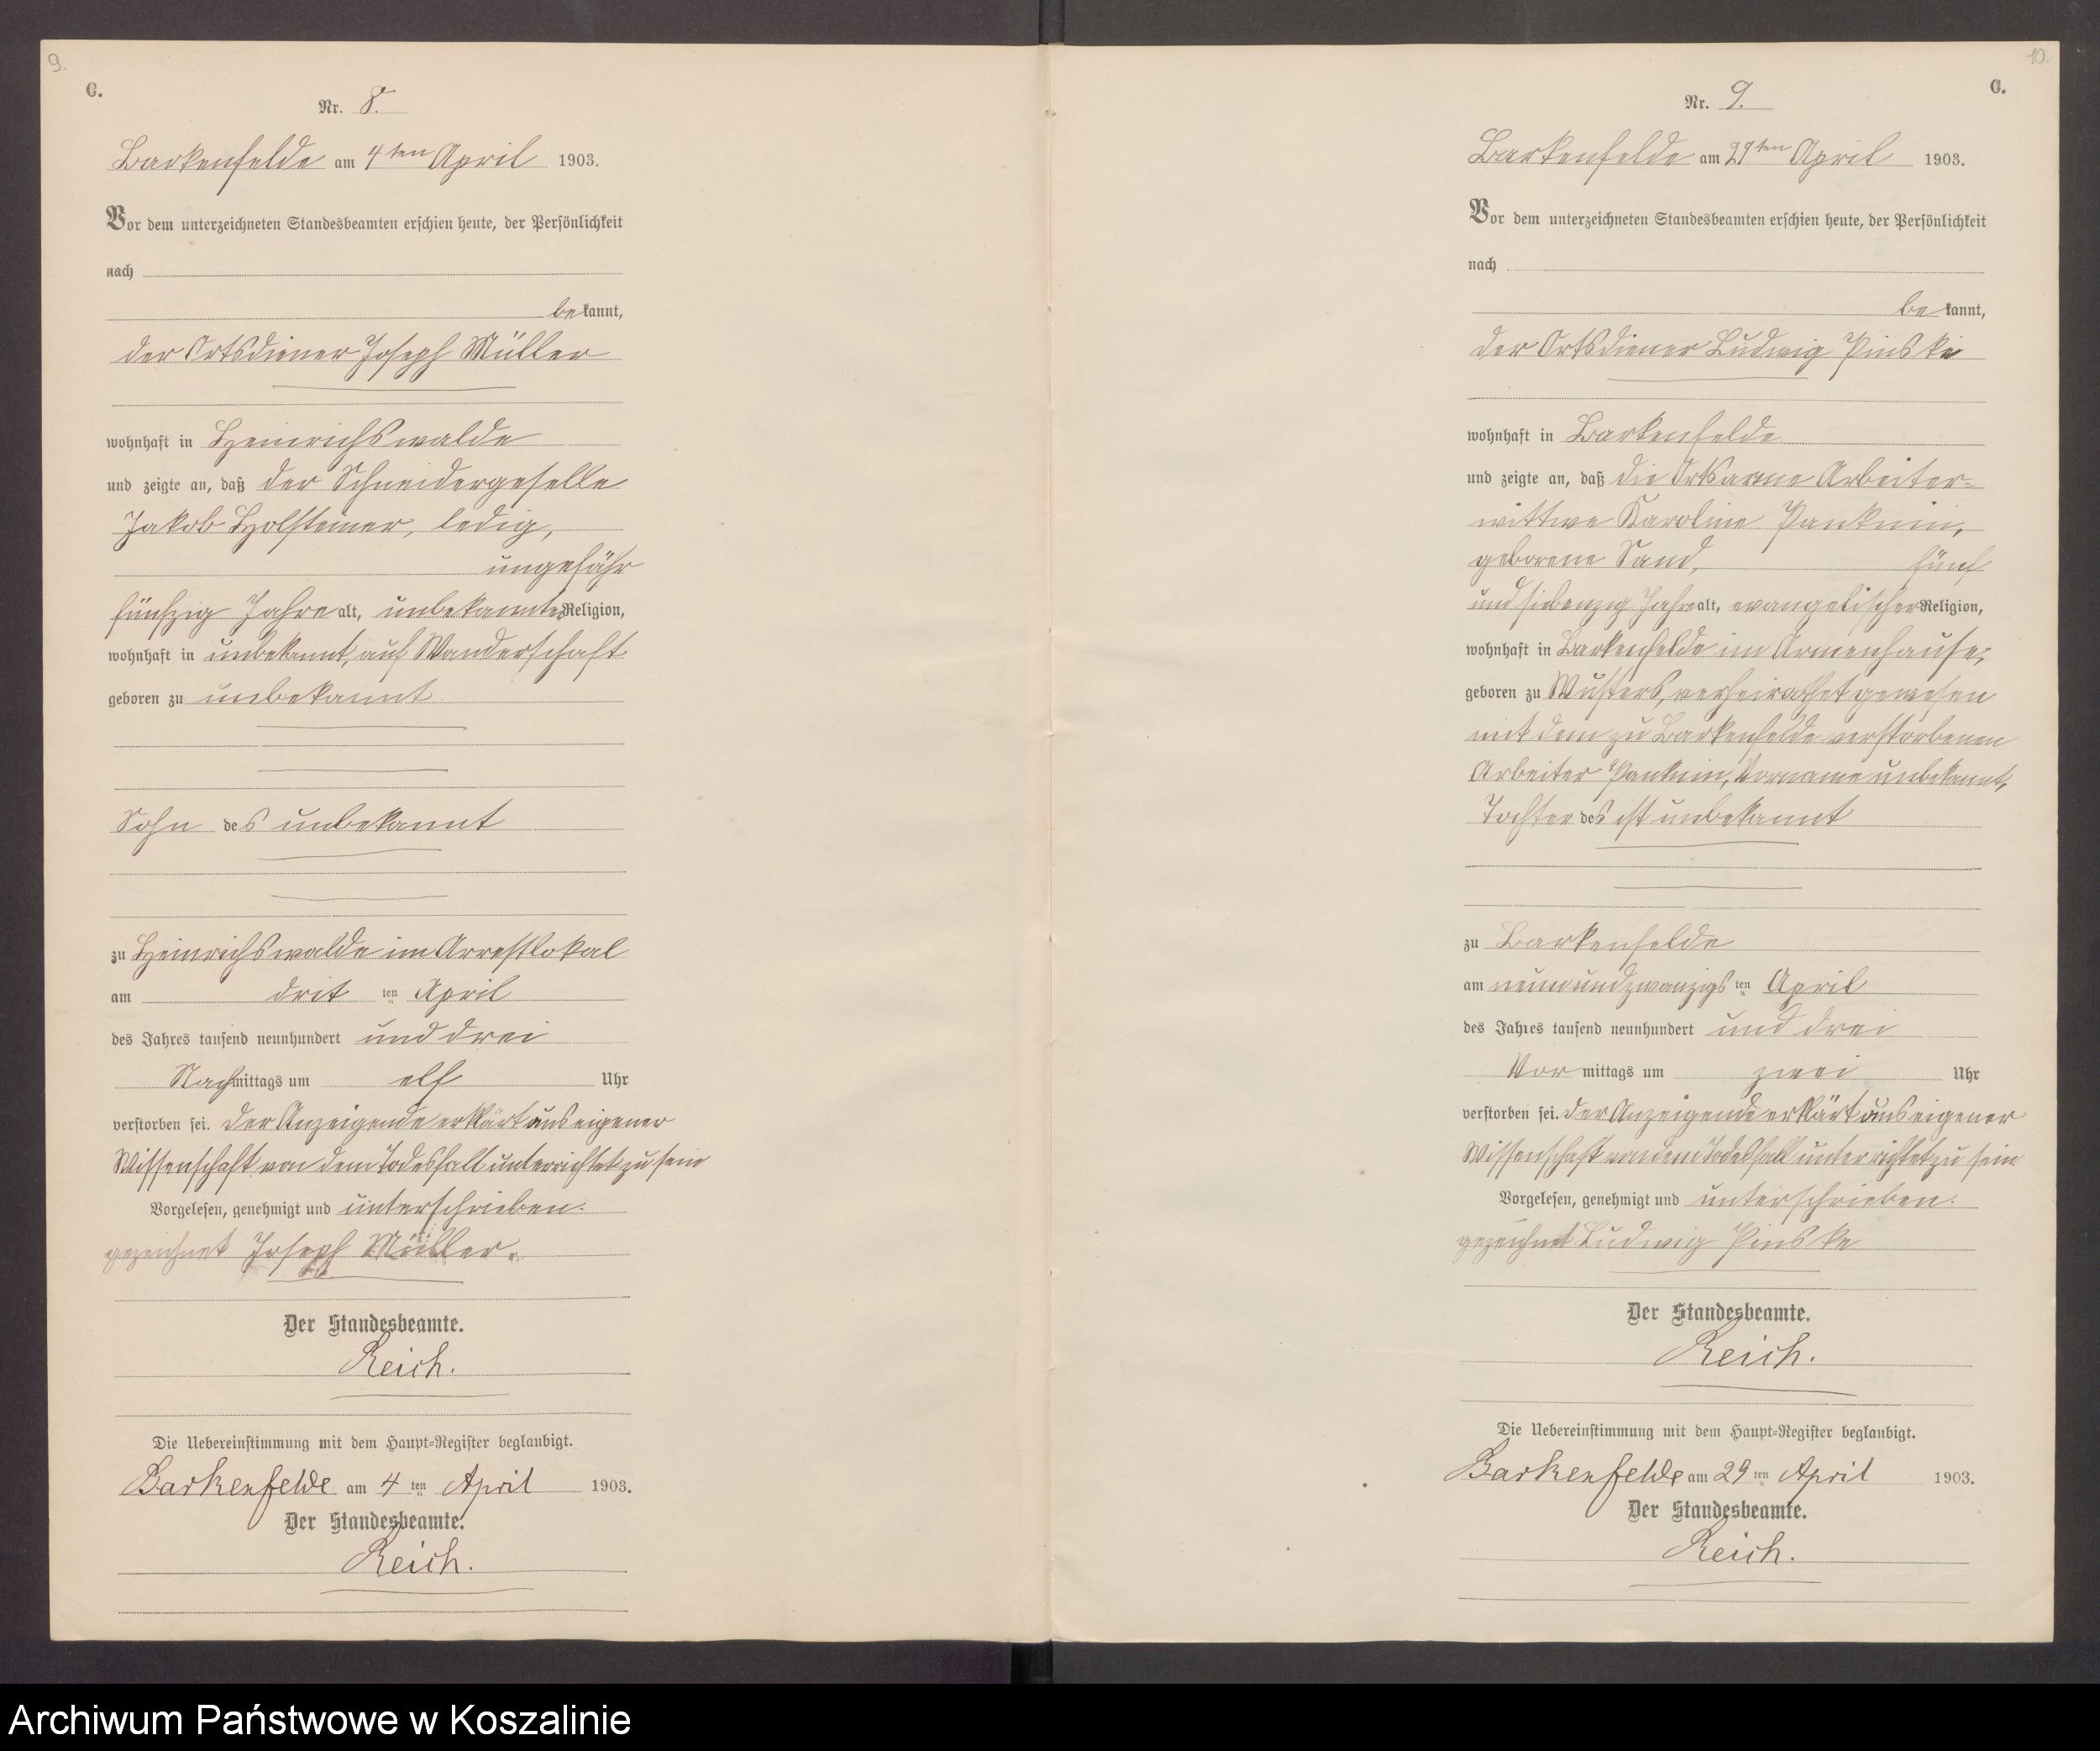 9.
C.
Nr. 8.
Barkenfelde am 4ten April 1903.
Vor dem unterzeichneten Standesbeamten erschien heute, der Persönlichkeit
nach
bekannt,
der Ortsdiener Joseph Müller
wohnhaft in Heinrichswalde
und zeigte an, daß der Schneidergeselle
Jakob Holsteiner, ledig,
ungefähr
fünfzig Jahre alt, unbekannter Religion,
wohnhaft in unbekannt, auf Wanderschaft
geboren zu unbekannt
Sohn des unbekannt
zu Heinrichswalde im Arrestlokal
am drit ten April
des Jahres tausend neunhundert und drei
Nachmittags um elf Uhr
verstorben sei. Der Anzeigende erklärt aus eigener
Wissenschaft von dem Todesfall unterrichtet zu sein
Vorgelesen, genehmigt und unterschrieben.
gezeichnet Joseph Müller.
Der Standesbeamte.
Reich.
Die Uebereinstimmung mit dem Haupt-Register beglaubigt.
Barkenfelde am 4 ten April 1903.
Der Standesbeamte.
Reich.
10.
C.
Nr. 9.
Barkenfelde am 29ten April 1903.
Vor dem unterzeichneten Standesbeamten erschien heute, der Persönlichkeit
nach
bekannt,
der Ortsdiener Ludwig Pinske
wohnhaft in Barkenfelde
und zeigte an, daß die Ortsarme Arbeiter-
wittwe Karoline Panknin,
geborene Sand, fünf
und siebenzig Jahre alt, evangelischer Religion,
wohnhaft in Barkenfelde im Armenhause,
geboren zu Wusters, verheirathet gewesen
mit dem zu Barkenfelde verstorbenen
Arbeiter Panknin, Vorname unbekannt,
Tochter des ist unbekannt
zu Barkenfelde
am neunundzwanzigs ten April
des Jahres tausend neunhundert und drei
Vor mittags um zwei Uhr
verstorben sei. Der Anzeigende erklärt aus eigener
Wissenschaft von dem Todesfall unterrichtet zu sein
Vorgelesen, genehmigt und unterschrieben.
gezeichnet Ludwig Pinske
Der Standesbeamte.
Reich.
Die Uebereinstimmung mit dem Haupt-Register beglaubigt.
Barkenfelde am 29 ten April 1903.
Der Standesbeamte.
Reich.
Archiwum Państwowe w Koszalinie